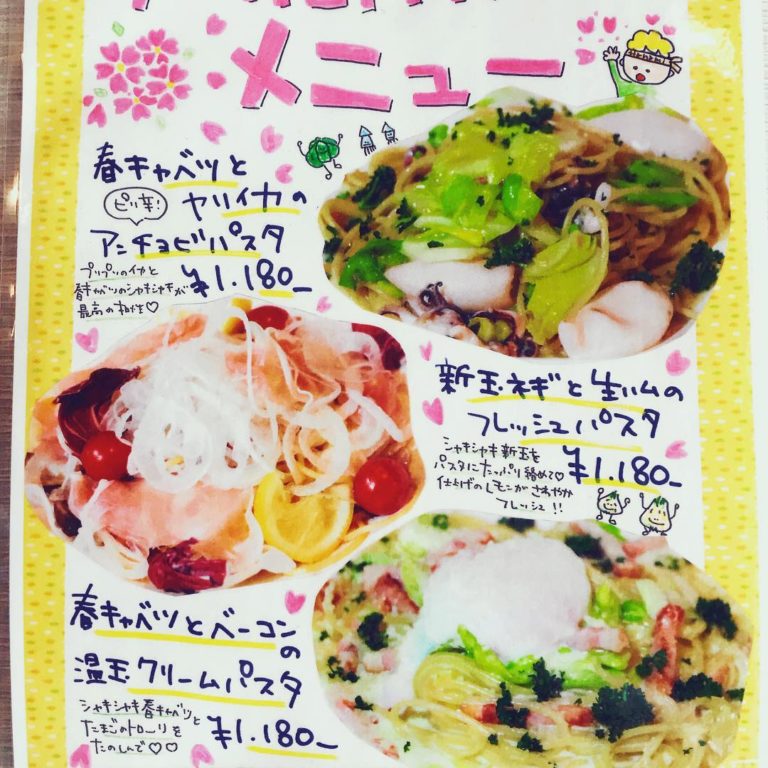 メニュー
春キャベツと
ピリ辛!
ヤリイカの
アンチョビパスタ
プリプリのイカと
春キャベツのシャキシャキが
最高のパスタ♡
¥1.180-
新玉ネギと生ハムの
フレッシュパスタ
シャキシャキ新玉を
パスタにたっぷり絡めて♡
仕上げのレモンがさわやか
フレッシュ!!
¥1.180-
春キャベツとベーコン
の
温玉クリームパスタ
シャキシャキ春キャベツと
たまごのトローリを
たのしんで♡♡
¥1.180-